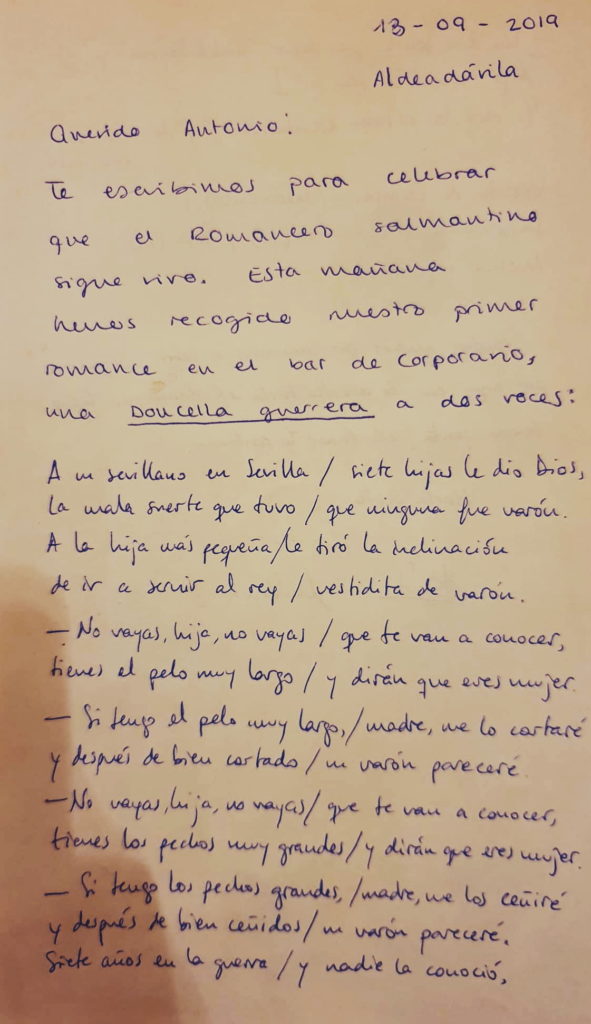 13 - 09 - 2019
Aldeadávila
Querido Antonio:
Te escribimos para celebrar
que el Romancero salmantino
sigue vivo. Esta mañana
hemos recogido nuestro primer
romance en el bar de Corporario,
una Doncella guerrera a dos voces:
A un sevillano en Sevilla / siete hijas le dio Dios,
la mala suerte que tuvo / que ninguna fue varón.
A la hija más pequeña / le tiró la inclinación
de ir a servir al rey / vestidita de varón.
– No vayas, hija, no vayas / que te van a conocer,
tienes el pelo muy largo / y dirán que eres mujer.
– Si tengo el pelo muy largo, / madre, me lo cortaré
y después de bien cortado / un varón pareceré.
– No vayas, hija, no vayas / que te van a conocer,
tienes los pechos muy grandes / y dirán que eres mujer.
– Si tengo los pechos grandes, / madre, me los ceñiré
y después de bien ceñidos / un varón pareceré.
Siete años en la guerra / y nadie la conoció,